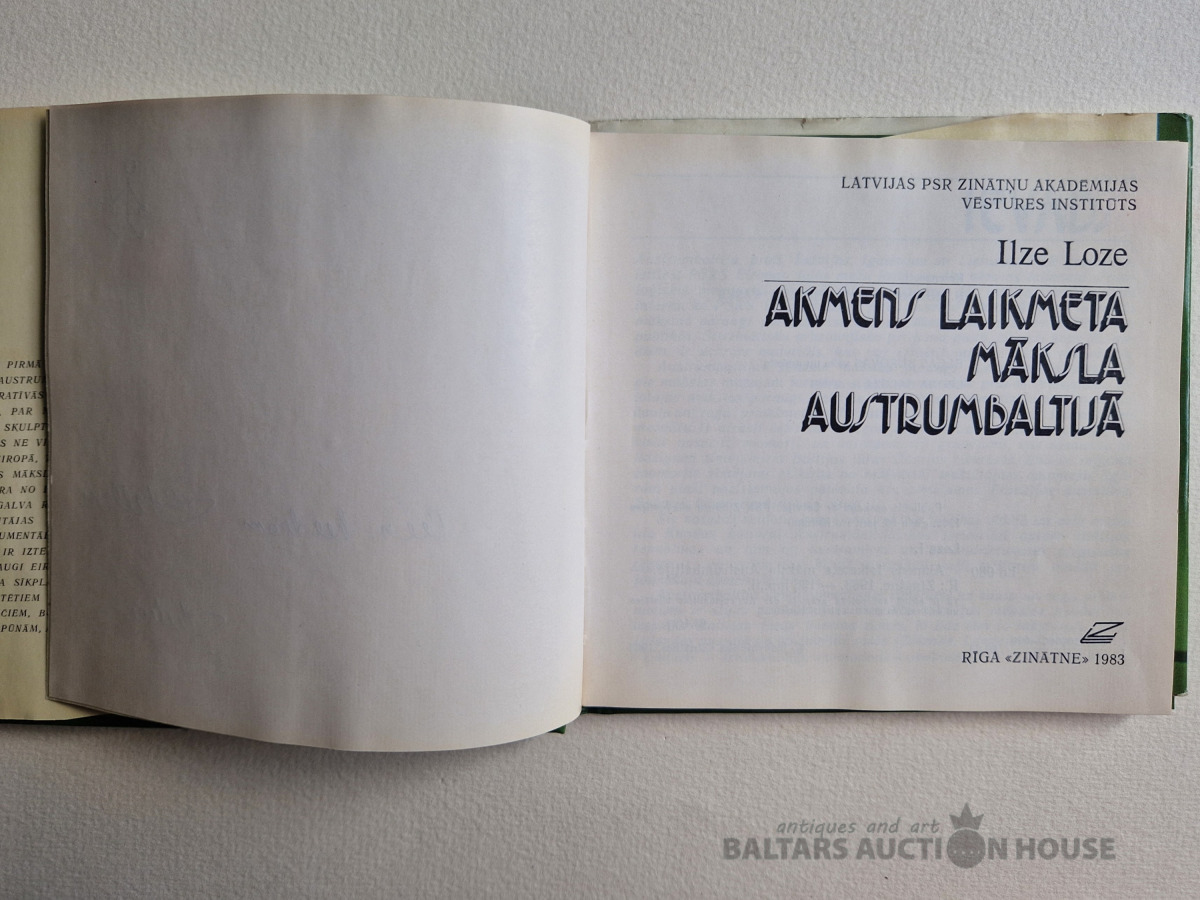 PIRMĀ
AUSTRUM
RATĪVĀS
PAR
SKULPT
S NE
EIROPĀ,
S MĀKSL
RA NO
GALVA
TĀJAS
UMENTĀL
IR IZTE
AUGI
A SĪKPL
TĒTIEM
ČIEM,
PŪNĀM,
LATVIJAS PSR ZINĀTŅU AKADĒMIJAS
VĒSTURES INSTITŪTS
Ilze Loze
AKMENS LAIKMETA
MĀKSLA
AUSTRUMBALTIJĀ
Z
RĪGA «ZINĀTNE» 1983
antiques and art
BALTARS AUCTION HOUSE